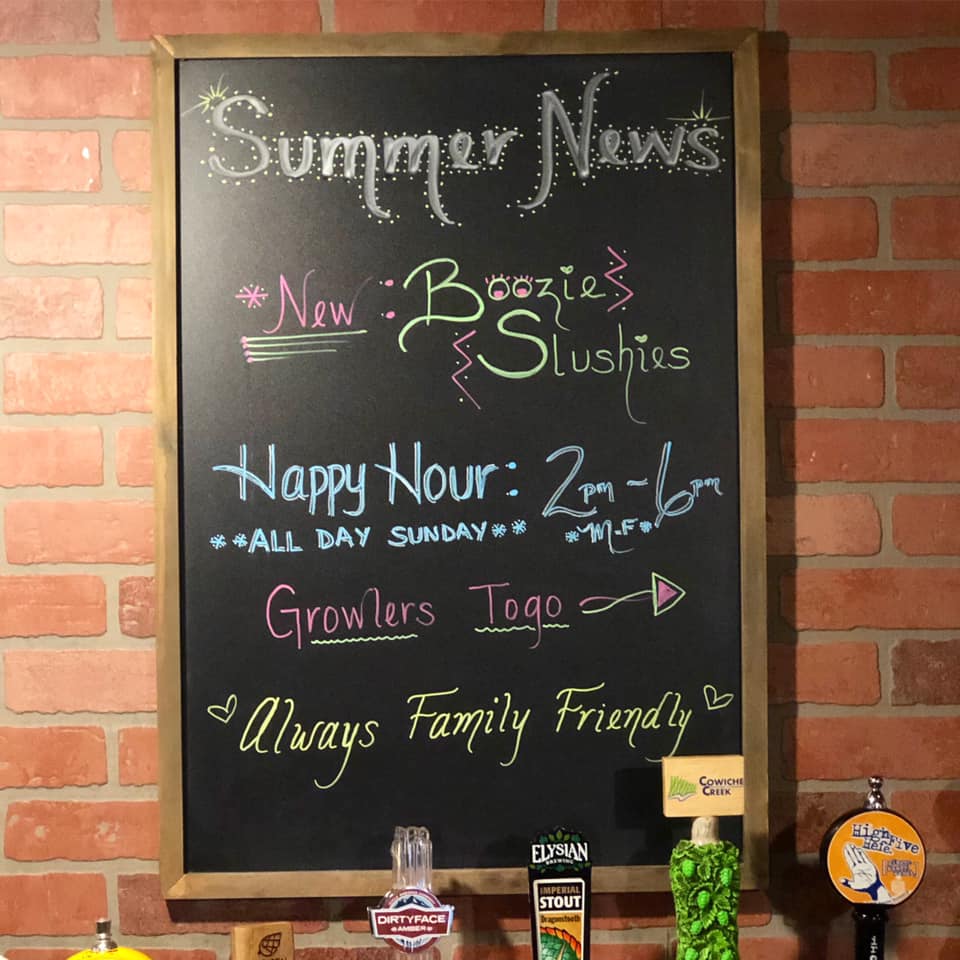 Summer News
*New: Boozie
Slushies
Happy Hour: 2pm - 6pm
**ALL DAY SUNDAY** *M-F*
Growlers Togo
Always Family Friendly
COWICHE
CREEK
High Five
Hefe
ELYSIAN
BREWING
IMPERIAL
STOUT
Dragonstooth
DIRTYFACE
AMBER